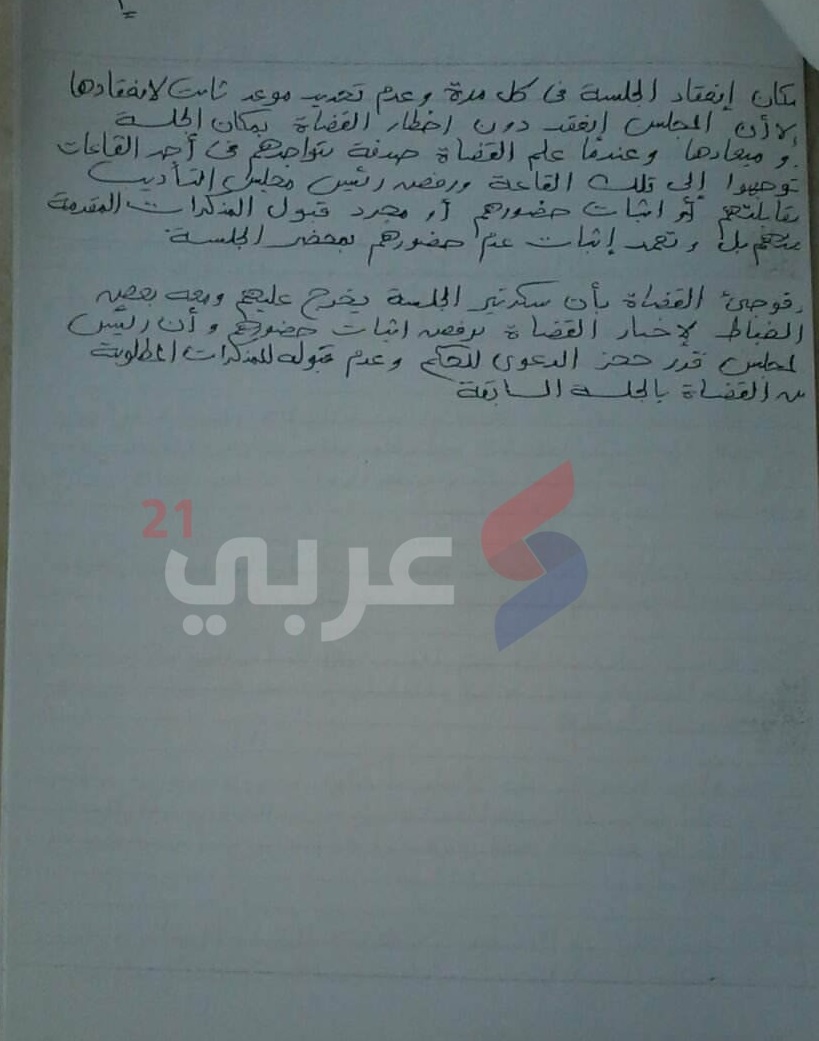 مكان إنعقاد الجلسة فى كل مرة وعدم تحديد موعد ثابت لانعقادها
إلا أن المجلس إنعقد دون اخطار القضاة بمكان الجلسة
و ميعادها وعندما علم القضاة صدفة بتواجدهم فى أحد القاعات
توجهوا إلى تلك القاعة ورفض رئيس مجلس التأديب
مقابلتهم أو اثبات حضورهم أو مجرد قبول المذكرات المقدمة
منهم بل وتعمد إثبات عدم حضورهم بمحضر الجلسة.
وفوجئ القضاة بأن سكرتير الجلسة يخرج عليهم ومعه بعض
الضباط لإخبار القضاة برفض اثبات حضورهم وأن رئيس
المجلس قرر حجز الدعوى للحكم وعدم قبوله للمذكرات المطلوبة
من القضاة بالجلسة السابقة
عربي 21